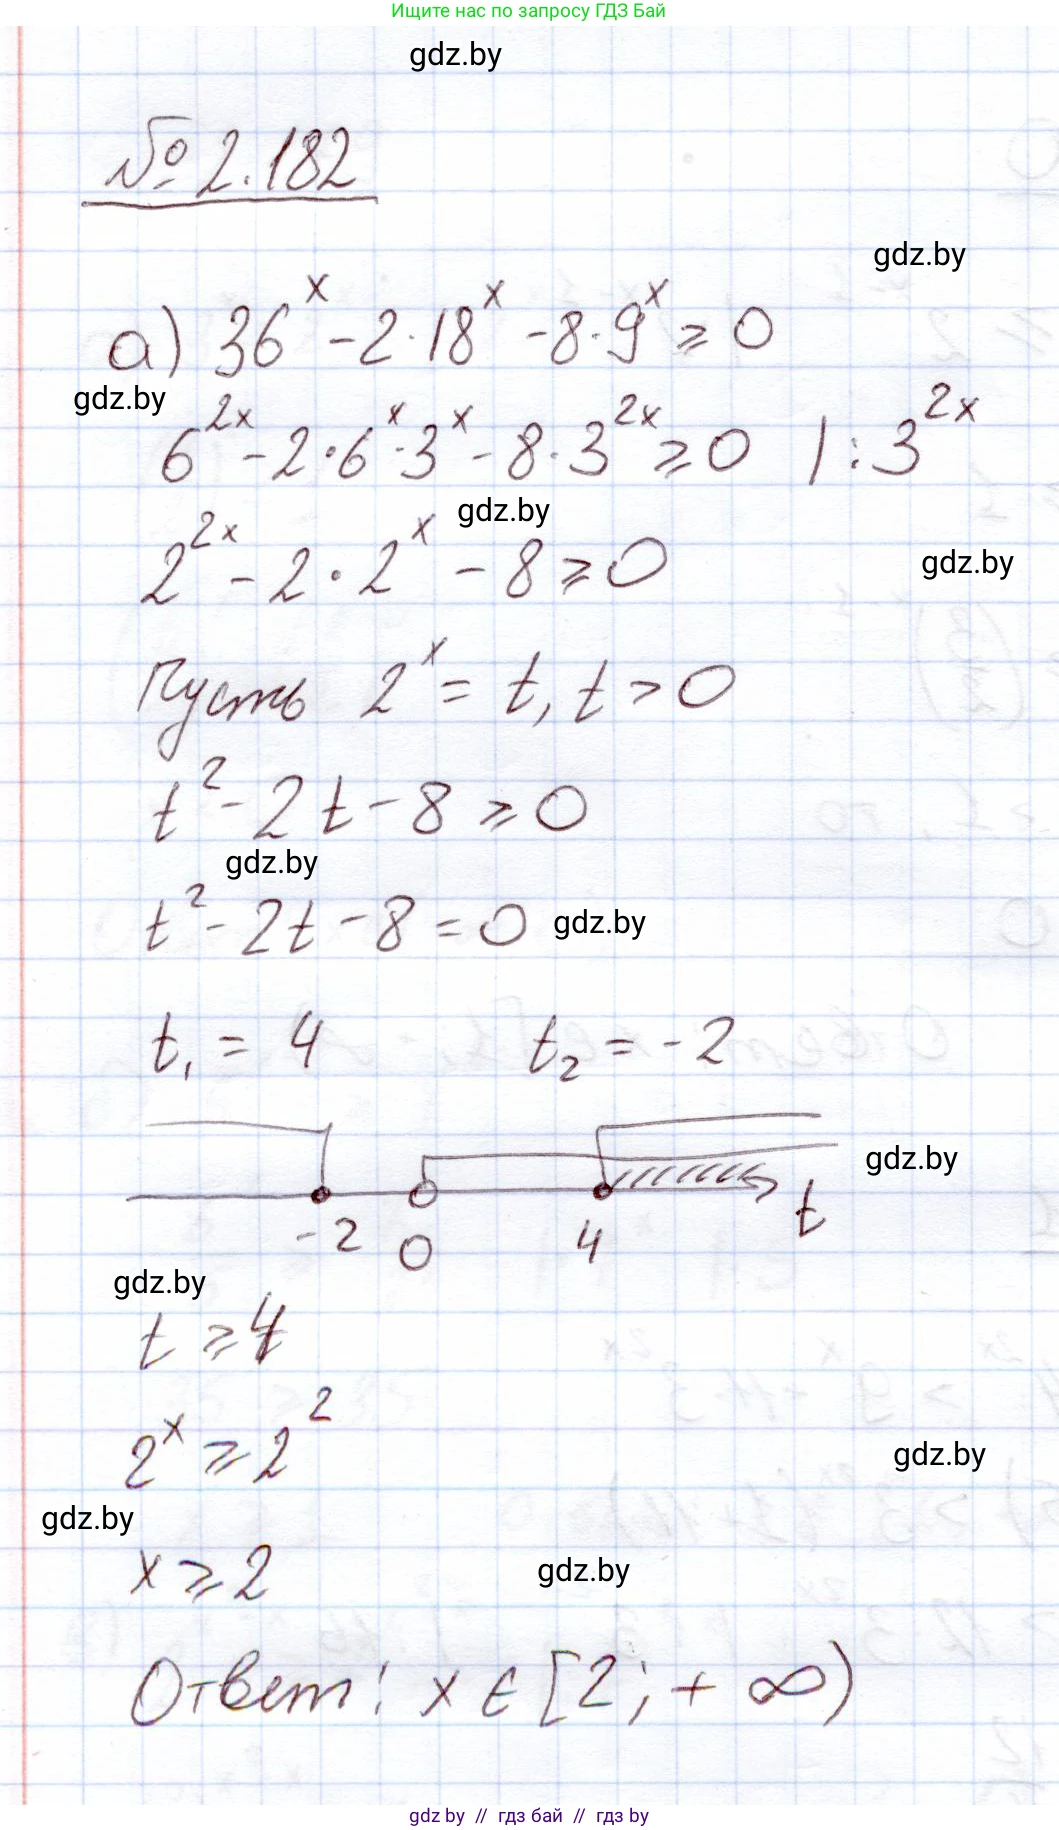 Ищите нас по запросу ГДЗ Бай
gdz.by
№ 2.182
gdz.by
а) 36^x - 2·18^x - 8·9^x ⩾ 0
gdz.by
6^{2x} - 2·6^x·3^x - 8·3^{2x} ⩾ 0 | : 3^{2x}
gdz.by
2^{2x} - 2·2^x - 8 ⩾ 0
gdz.by
Пусть 2^x = t, t > 0
t^2 - 2t - 8 ⩾ 0
gdz.by
t^2 - 2t - 8 = 0
gdz.by
t_1 = 4 t_2 = -2
gdz.by
-2 0 4 t
gdz.by
t ⩾ 4
2^x ⩾ 2^2
gdz.by
gdz.by
x ⩾ 2
gdz.by
Ответ: x ∈ [2; +∞)
gdz.by // гдз бай // гдз by